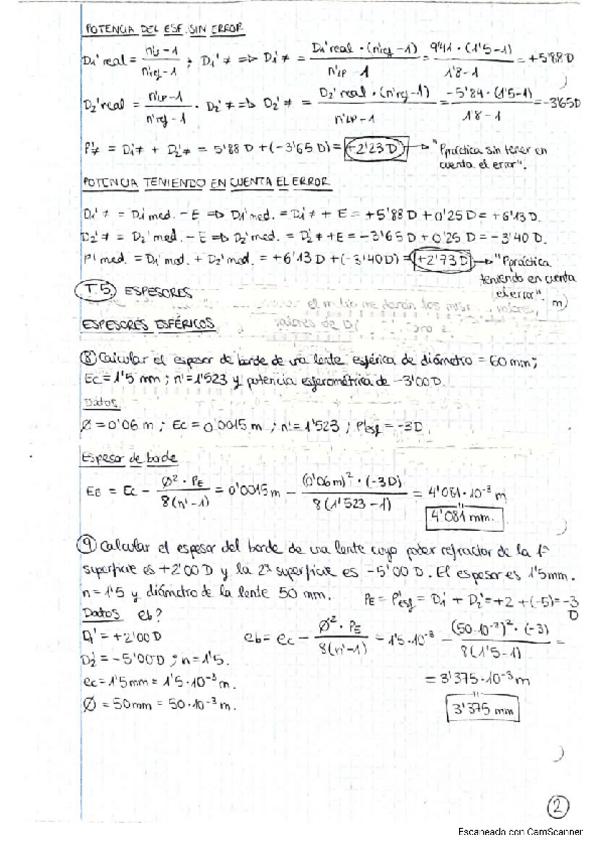 POTENCIA DEL ESF. SIN ERROR
D₁' real = (n'ij - 1)/(n'ref - 1) ; D₁' ≠ => D₁' ≠ = (D₁' real · (n'ref - 1))/(n'LP - 1) = (9'41 · (1'5 - 1))/(1'8 - 1) = +5'88 D
D₂' real = (n'LP - 1)/(n'ref - 1) · D₂' ≠ => D₂' ≠ = (D₂' real · (n'ref - 1))/(n'LP - 1) = (-5'84 · (1'5 - 1))/(1'8 - 1) = -3'65 D
P'≠ = D₁' ≠ + D₂' ≠ = 5'88 D + (-3'65 D) = +2'23 D → "Ppráctica sin tener en
cuenta el error".
POTENCIA TENIENDO EN CUENTA EL ERROR
D₁' ≠ = D₁' med. - E => D₁' med. = D₁' ≠ + E = +5'88 D + 0'25 D = +6'13 D.
D₂' ≠ = D₂' med. - E => D₂' med. = D₂' ≠ + E = -3'65 D + 0'25 D = -3'40 D.
P' med. = D₁' med. + D₂' med. = +6'13 D + (-3'40 D) = +2'73 D → "Ppráctica
teniendo en cuenta
el error".
T.5 ESPESORES
ESPESORES ESFÉRICOS
⑧ Calcular el espesor de borde de una lente esférica de diámetro = 60 mm;
Ec = 1'5 mm ; n' = 1'523 y potencia esferométrica de -3'00 D.
Datos
Ø = 0'06 m ; Ec = 0'0015 m ; n' = 1'523 ; P'esf = -3D
Espesor de borde
EB = Ec - (Ø² · PE)/(8(n' - 1)) = 0'0015 m - ((0'06 m)² · (-3D))/(8(1'523 - 1)) = 4'081·10⁻³ m
4'081 mm.
⑨ Calcular el espesor del borde de una lente cuyo poder refractor de la 1ª
superficie es +2'00 D y la 2ª superficie es -5'00 D. El espesor es 1'5mm.
n = 1'5 y diámetro de la lente 50 mm.
PE = P'esf = D₁' + D₂' = +2 + (-5) = -3
D
Datos eb?
D₁' = +2'00 D
D₂' = -5'00 D ; n = 1'5.
ec = 1'5mm = 1'5·10⁻³ m.
Ø = 50mm = 50·10⁻³ m.
eb = ec - (Ø² · PE)/(8(n' - 1)) = 1'5·10⁻³ - ((50·10⁻³)² · (-3))/(8(1'5 - 1)) =
= 3'375·10⁻³ m
3'375 mm
2
Escaneado con CamScanner